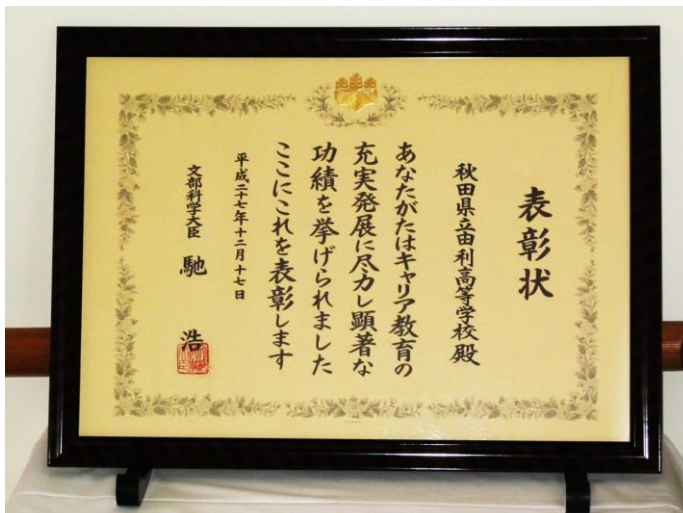 表彰状
秋田県立由利高等学校殿
あなたがたはキャリア教育の
充実発展に尽力し顕著な
功績を挙げられました
ここにこれを表彰します
平成二十七年十二月十七日
文部科学大臣 馳 浩